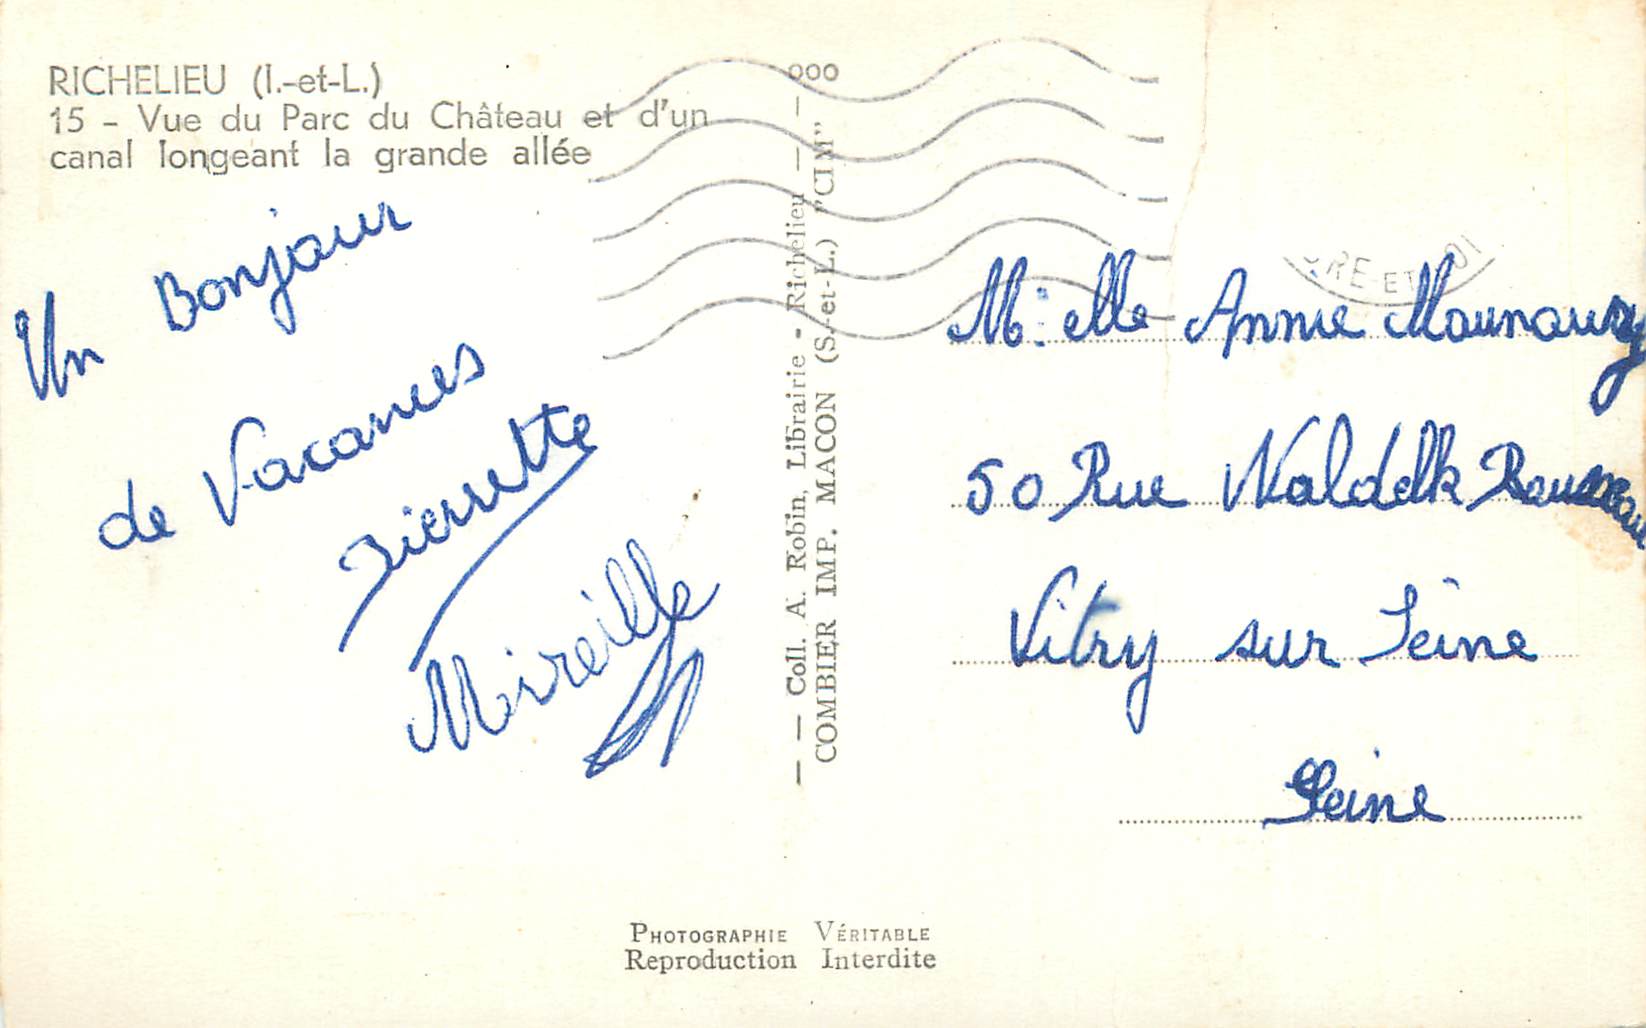 RICHELIEU (I.-et-L.)
15 - Vue du Parc du Château et d'un
canal longeant la grande allée
Un Bonjour
de Vacances
Pierrette
Mireille
— — Coll. A. Robin, Librairie - Richelieu — — ooo
COMBIER IMP. MACON (S.-et-L.) "CIM"
RE-ET-LOI
M: elle Annie Maunoury
50 Rue Waldelk Rousseau
Vitry sur Seine
Seine
PHOTOGRAPHIE VÉRITABLE
Reproduction Interdite